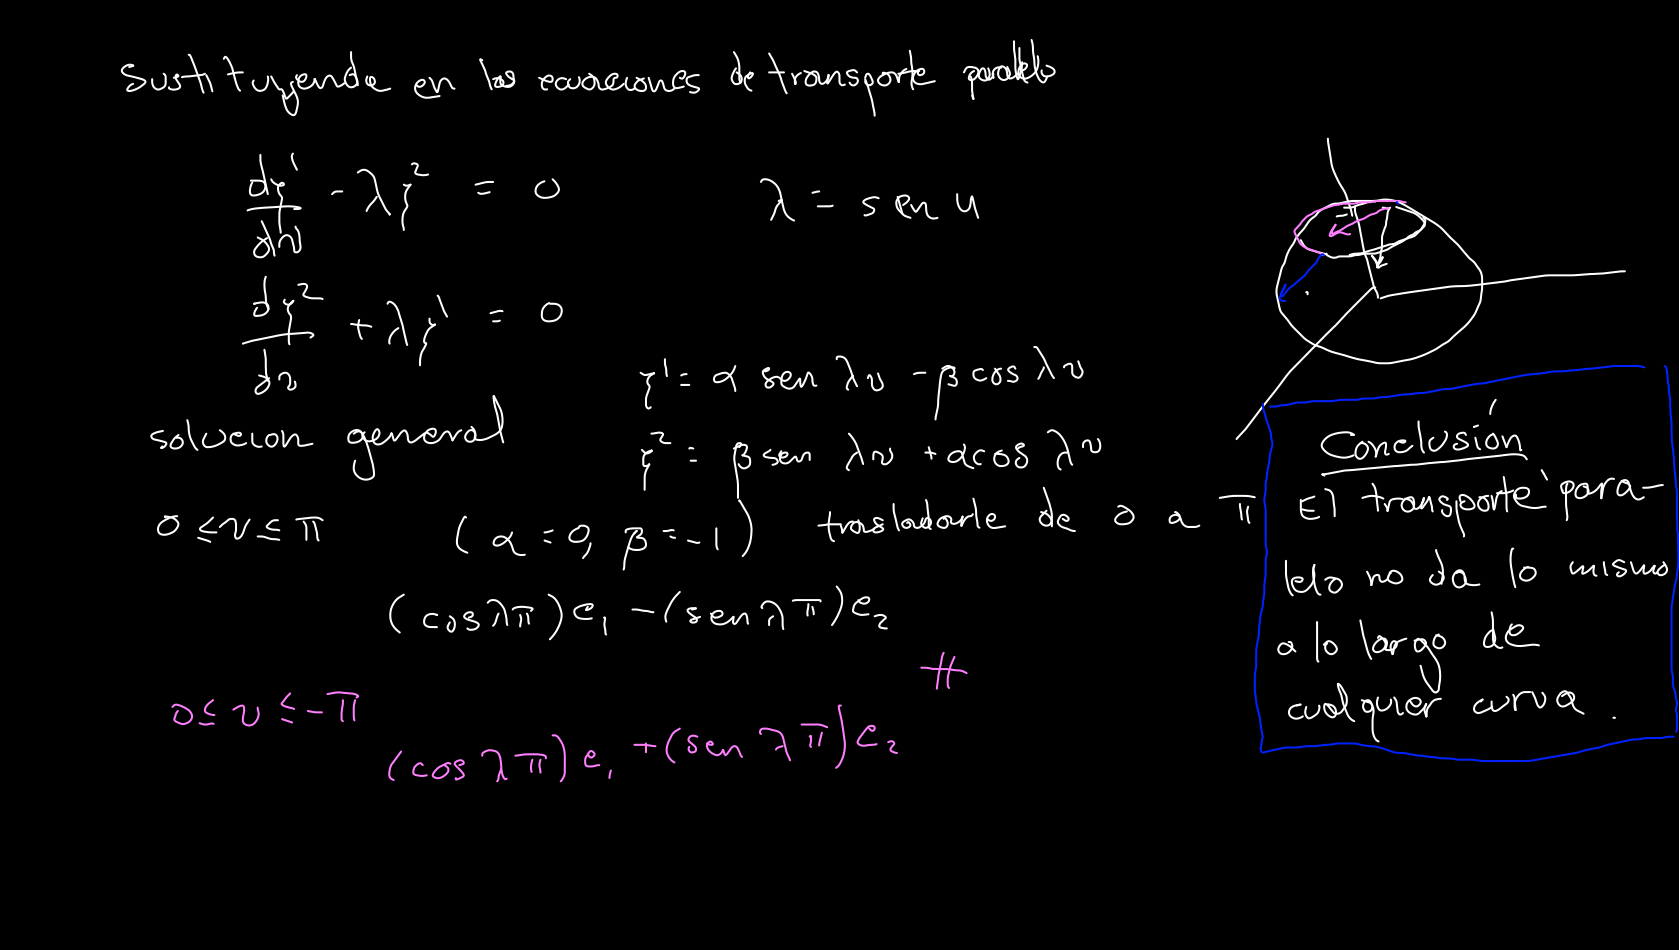 Sustituyendo en las ecuaciones de transporte paralelo
dξ¹/dv - λξ² = 0
λ = sen u
dξ²/dv + λξ¹ = 0
ξ¹ = α sen λv - β cos λv
solucion general
ξ² = β sen λv + α cos λv
0 ≤ v ≤ π (α = 0, β = -1) trasladarle de 0 a π
(cos λπ)e₁ - (sen λπ)e₂
#
0 ≤ v ≤ -π
(cos λπ)e₁ + (sen λπ)e₂
Conclusión
El transporte para-
lelo no da lo mismo
a lo largo de
cualquier curva.